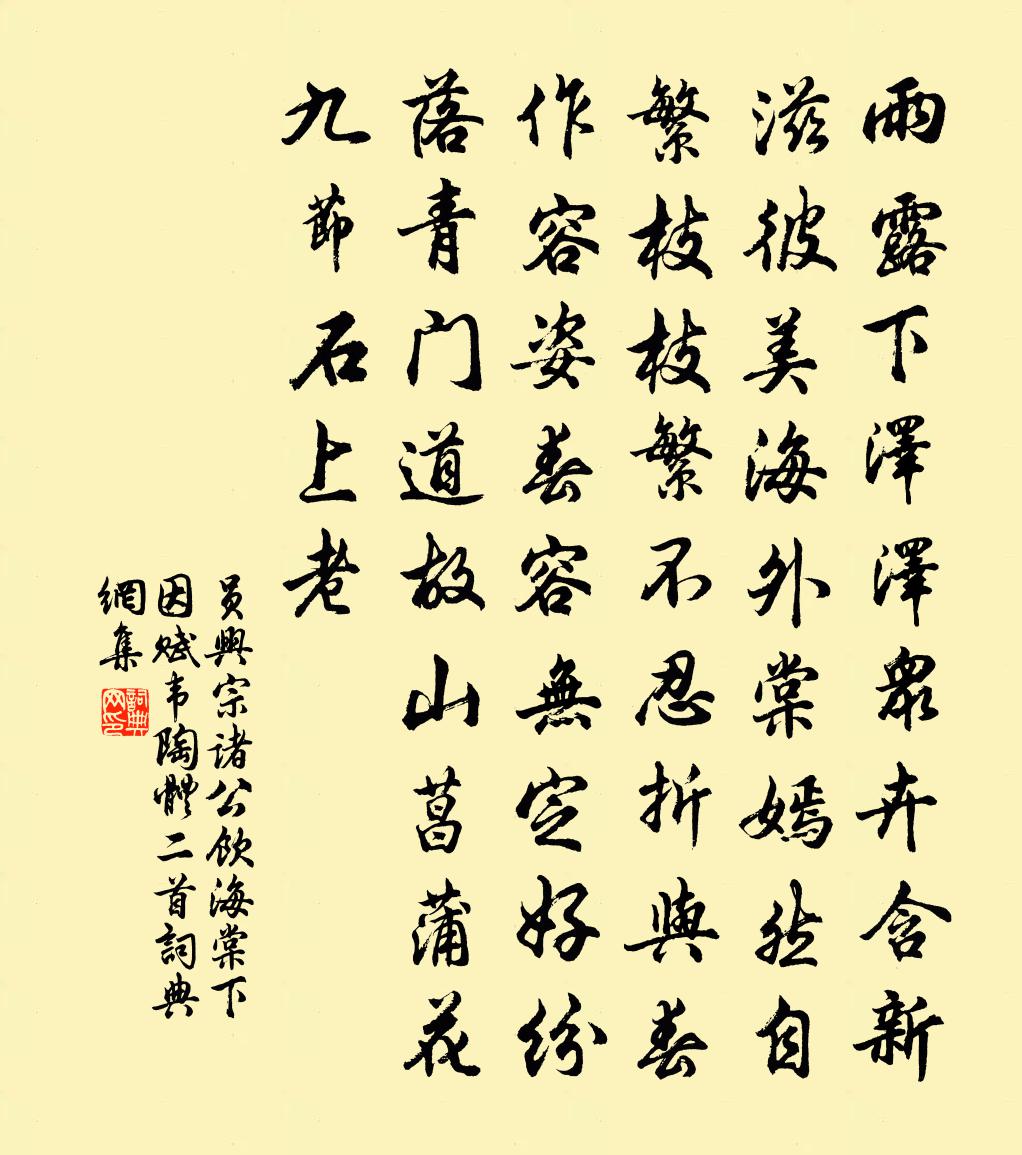 雨露下澤澤眾卉含新
滋彼美海外棠嫣然自
繁枝枝繁不忍折與春
作容姿春容無定好紛
落青門道故山菖蒲花
九節石上老
員興宗諸公飲海棠下
因赋韦陶體二首詞典
網集
詞典
网印